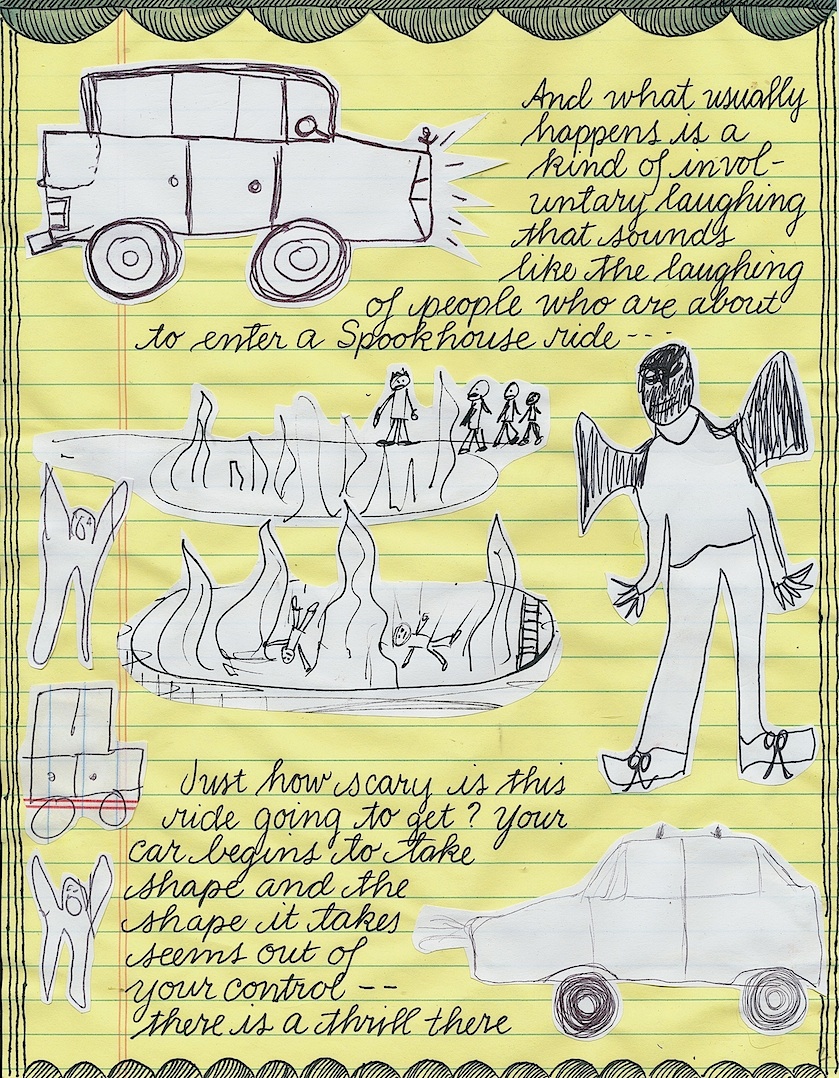 And what usually
happens is a
kind of invol-
untary laughing
that sounds
like the laughing
of people who are about
to enter a Spookhouse ride---
Just how scary is this
ride going to get? Your
car begins to take
shape and the
shape it takes
seems out of
your control --
there is a thrill there